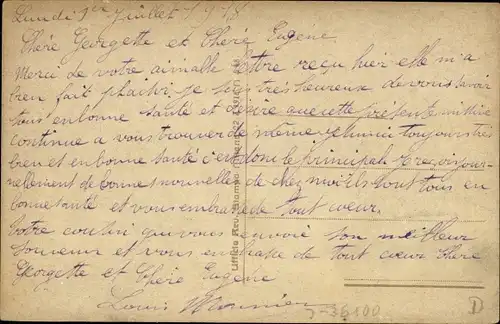 Lundi 1er Juillet 1918
Chère Georgette et Chère Eugène
Merci de votre aimable lettre reçu hier elle m'a
bien fait plaisir je suis très heureux de vous savoir
tous en bonne santé et désire que cette présente missive
continue a vous trouver de même
bien et en bonne santé c'est donc le principale je reçois jour-
nellement de bonnes nouvelles de chez moi ils sont tous en
bonne santé et vous embrasse de tout cœur.
Votre cousin qui vous envoie son meilleur
souvenir et vous embrasse de tout cœur Chère
Georgette et Chère Eugène
Louis Meunier
J-36100
D